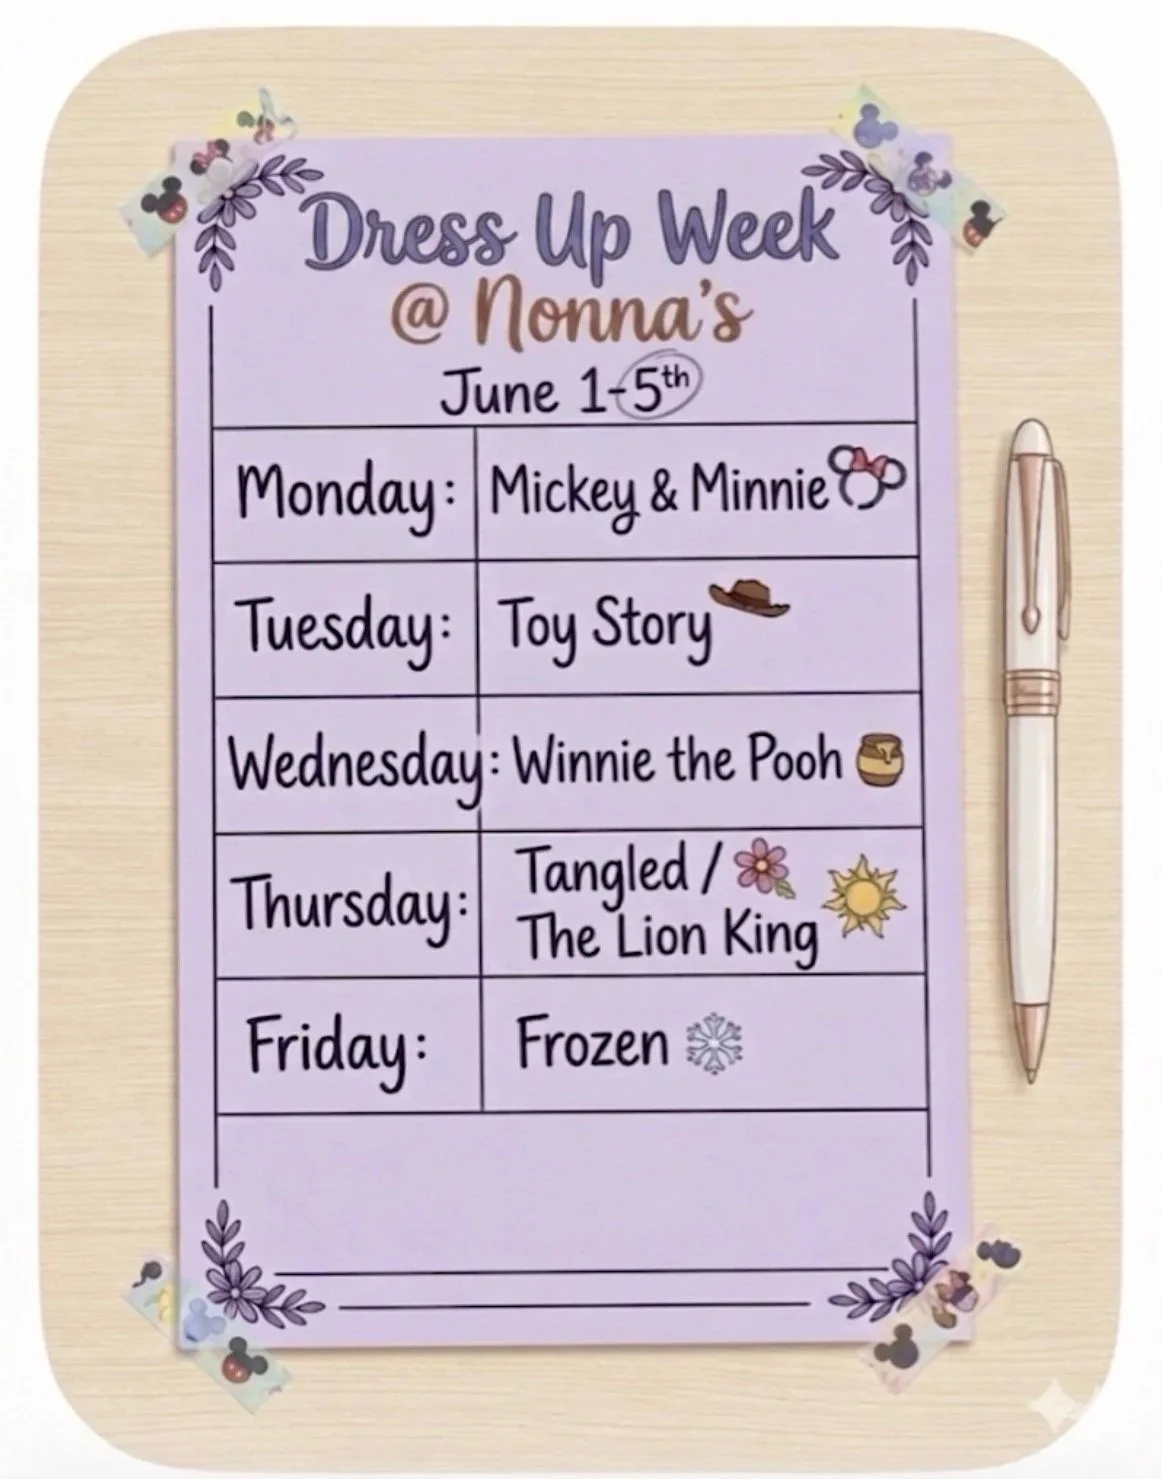 Dress Up Week
@ Nonna's
June 1-5th
Monday: Mickey & Minnie
Tuesday: Toy Story
Wednesday: Winnie the Pooh
Thursday: Tangled /
The Lion King
Friday: Frozen